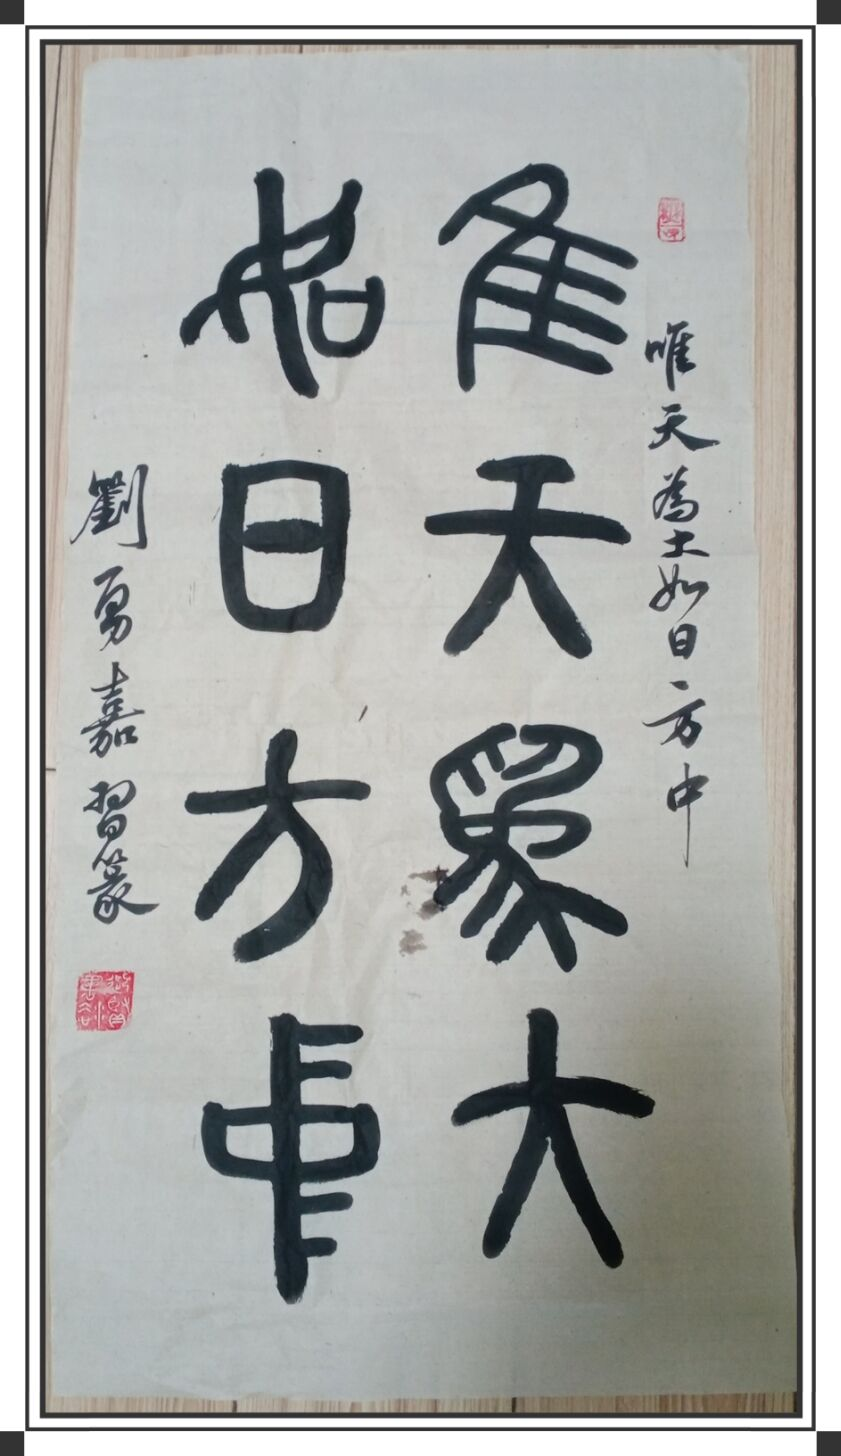 唯天為大如日方中
隹天為大
如日方中
劉勇嘉習篆